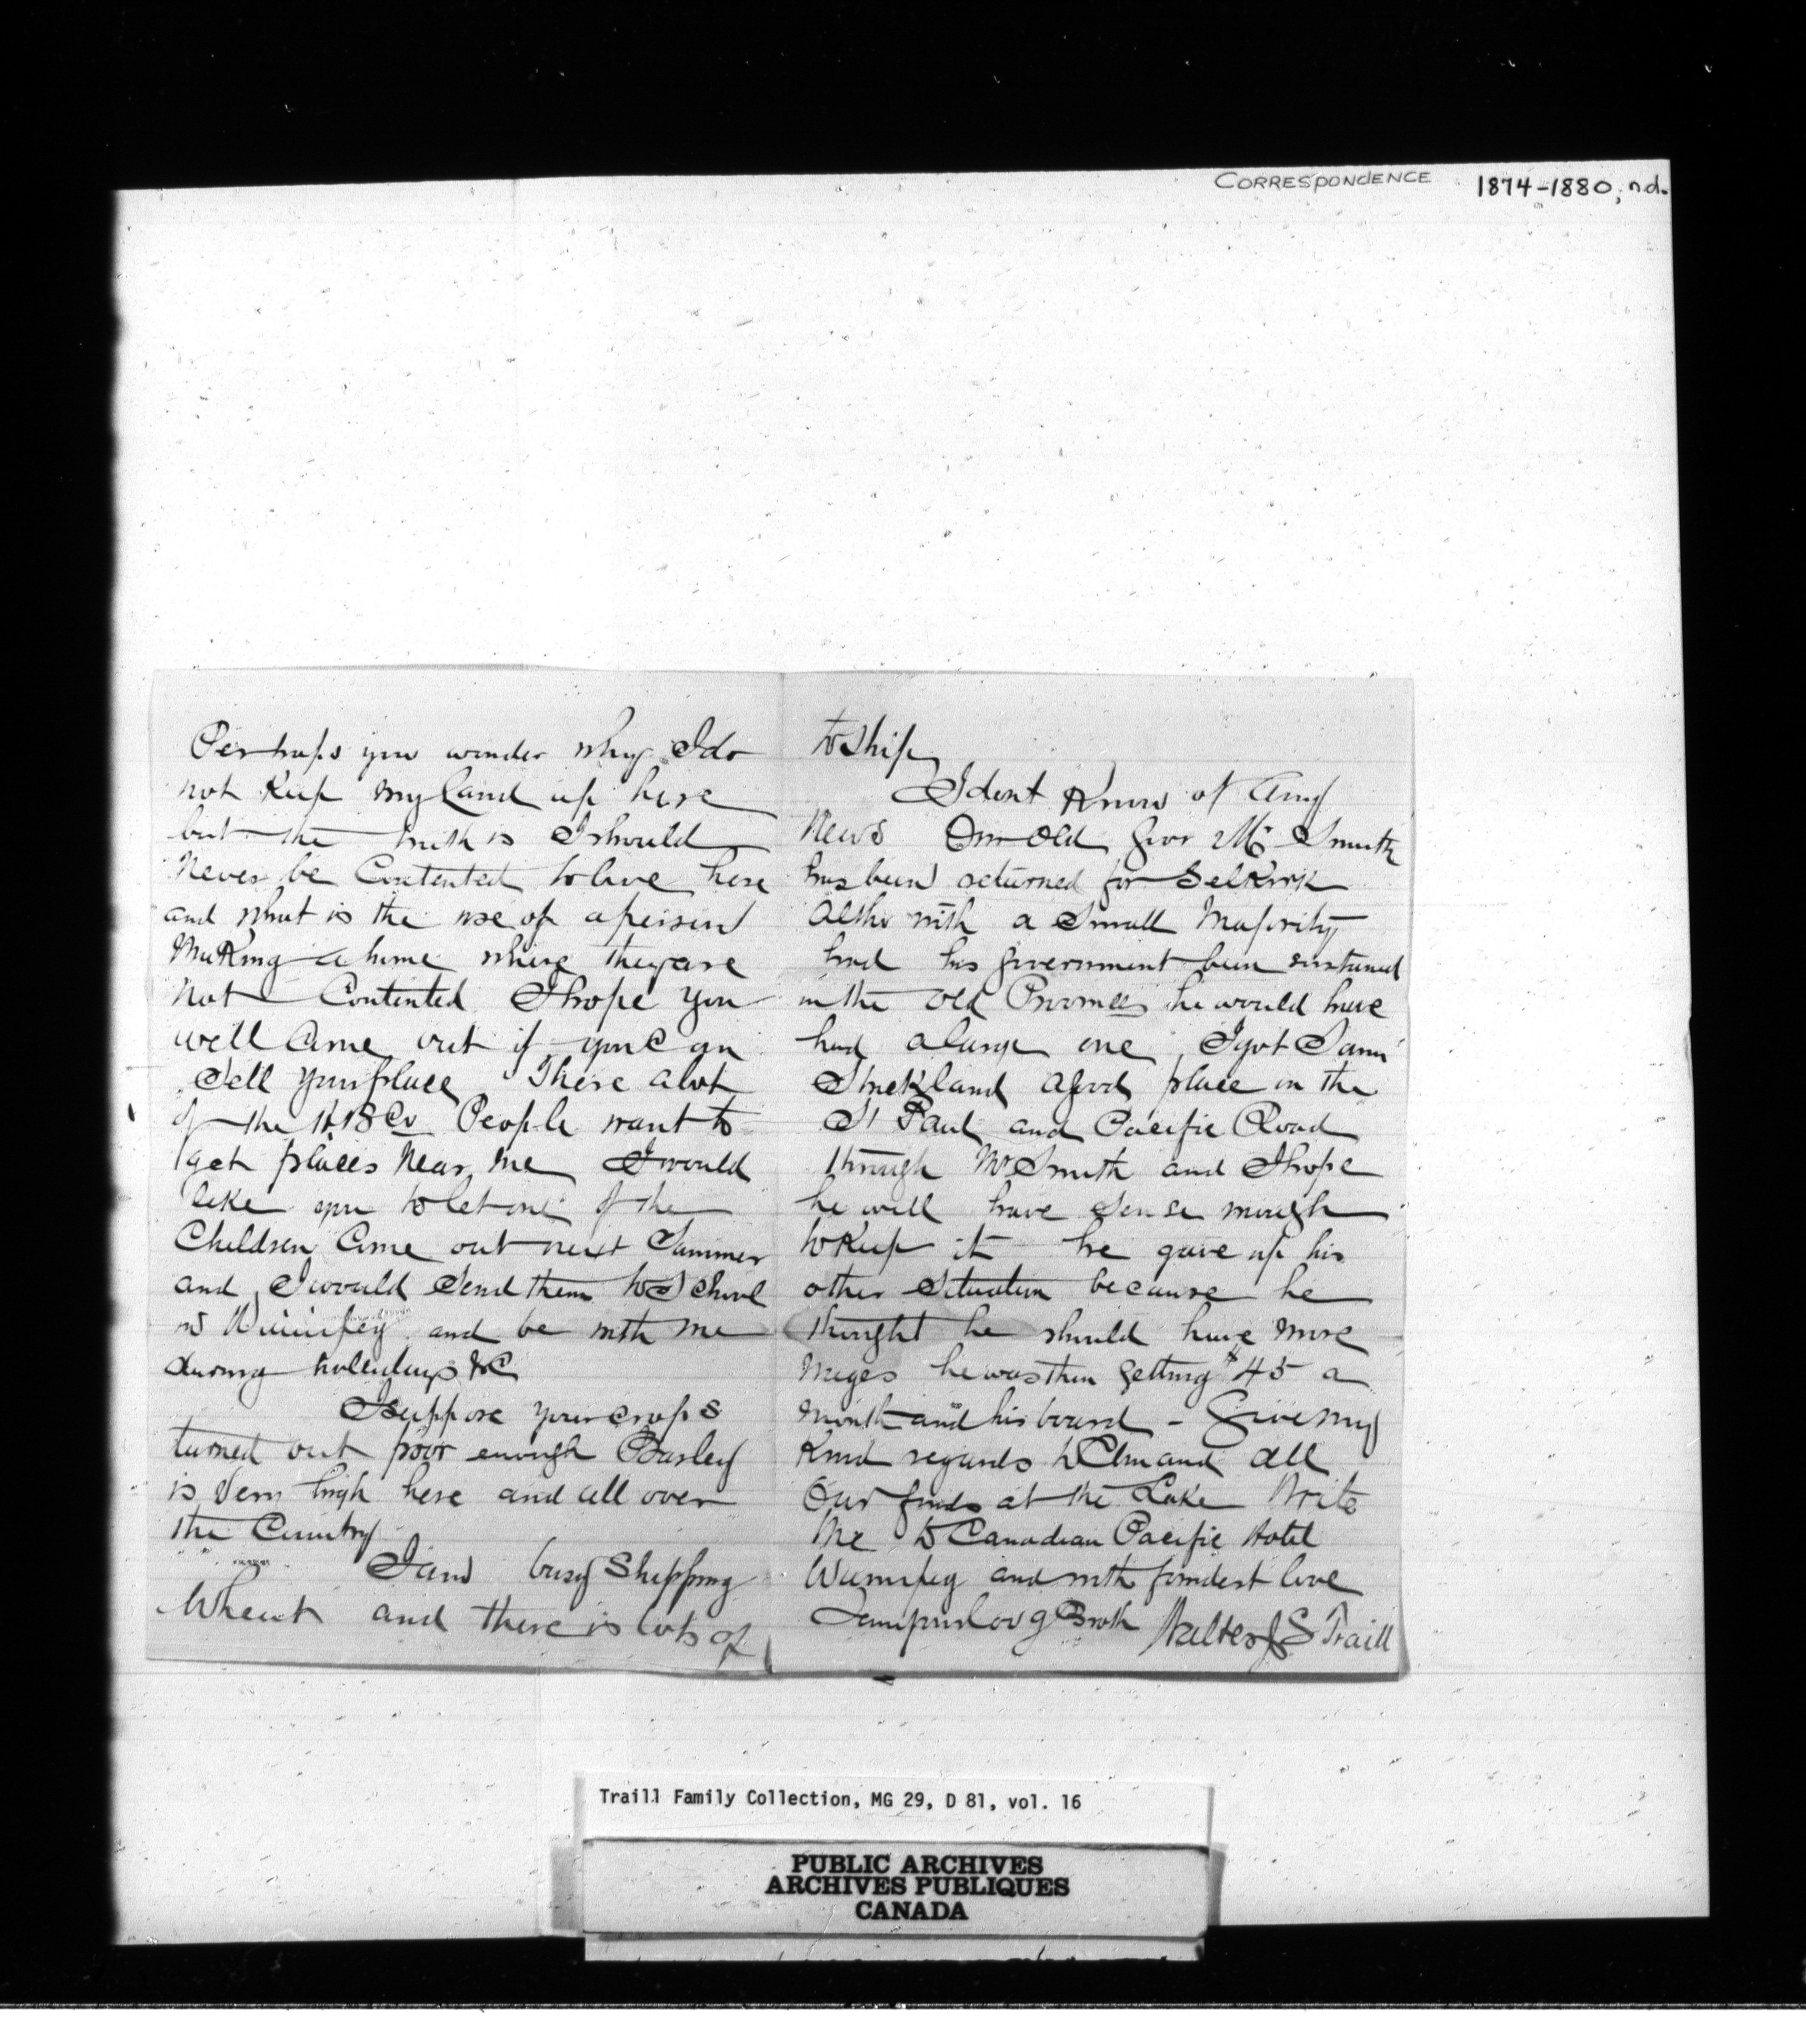 CORRESPONDENCE 1874-1880, n.d.
Perhaps you wonder why I do
not Keep my land up here
but the truth is I should
Never be Contented to live here
and what is the use of a person
Making a home where they are
Not Contented I hope you
will Come out if you Can
Sell your place There a lot
of the H B Co People want to
get places Near me I would
like you to let one of the
Children Come out next Summer
and I would Send them to School
in Winnipeg and be with me
during hollidays &C
I suppose your crops
turned out poor enough Barley
is Very high here and all over
the Country
I am busy Shipping
Wheat and there is lots of
to Ship
I dont Know of Any
News Our Old Govr Mr Smith
has been returned for Selkirk
Altho with a Small Majority
had his government been sustained
in the Old Provinces he would have
had a large one I got
Strickland a good place on the
St Paul and Pacific Road
through Mr Smith and I hope
he will have Sense enough
to Keep it he gave up his
other Situation because he
thought he should have more
wages he was then getting $45 a
month and his board - Give my
Kind regards to Clin and all
Our finds at the Lake Write
Me to Canadian Pacific Hotel
Winnipeg and with fondest love
Broth Walter J S Traill
Traill Family Collection, MG 29, D 81, vol. 16
PUBLIC ARCHIVES
ARCHIVES PUBLIQUES
CANADA